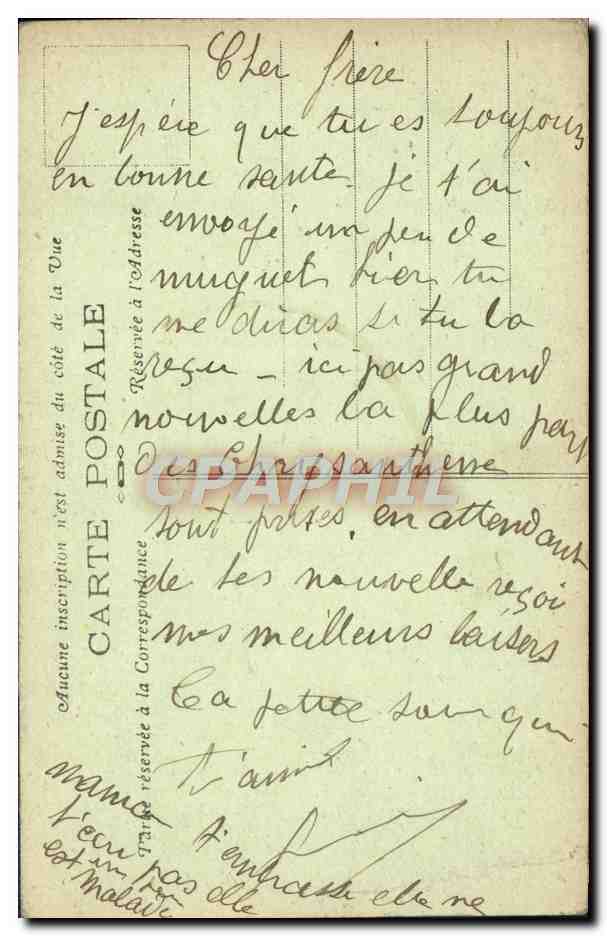 Cher frère
J'espère que tu es toujours
en bonne santé. je t'ai
envoyé un peu de
muguet hier tu
me diras si tu la
reçu - ici pas grand
nouvelles la plus part
des Chrysantheme
sont prises, en attendant
de tes nouvelle reçoi
mes meilleurs baisers
Ta petite sœur qui
t'aime
maman t'embrasse elle ne
t'ecri pas elle
est un peu
malade
Aucune inscription n'est admise du côté de la Vue
CARTE POSTALE
Réservée à l'Adresse
Partie réservée à la Correspondance
CPAPHIL